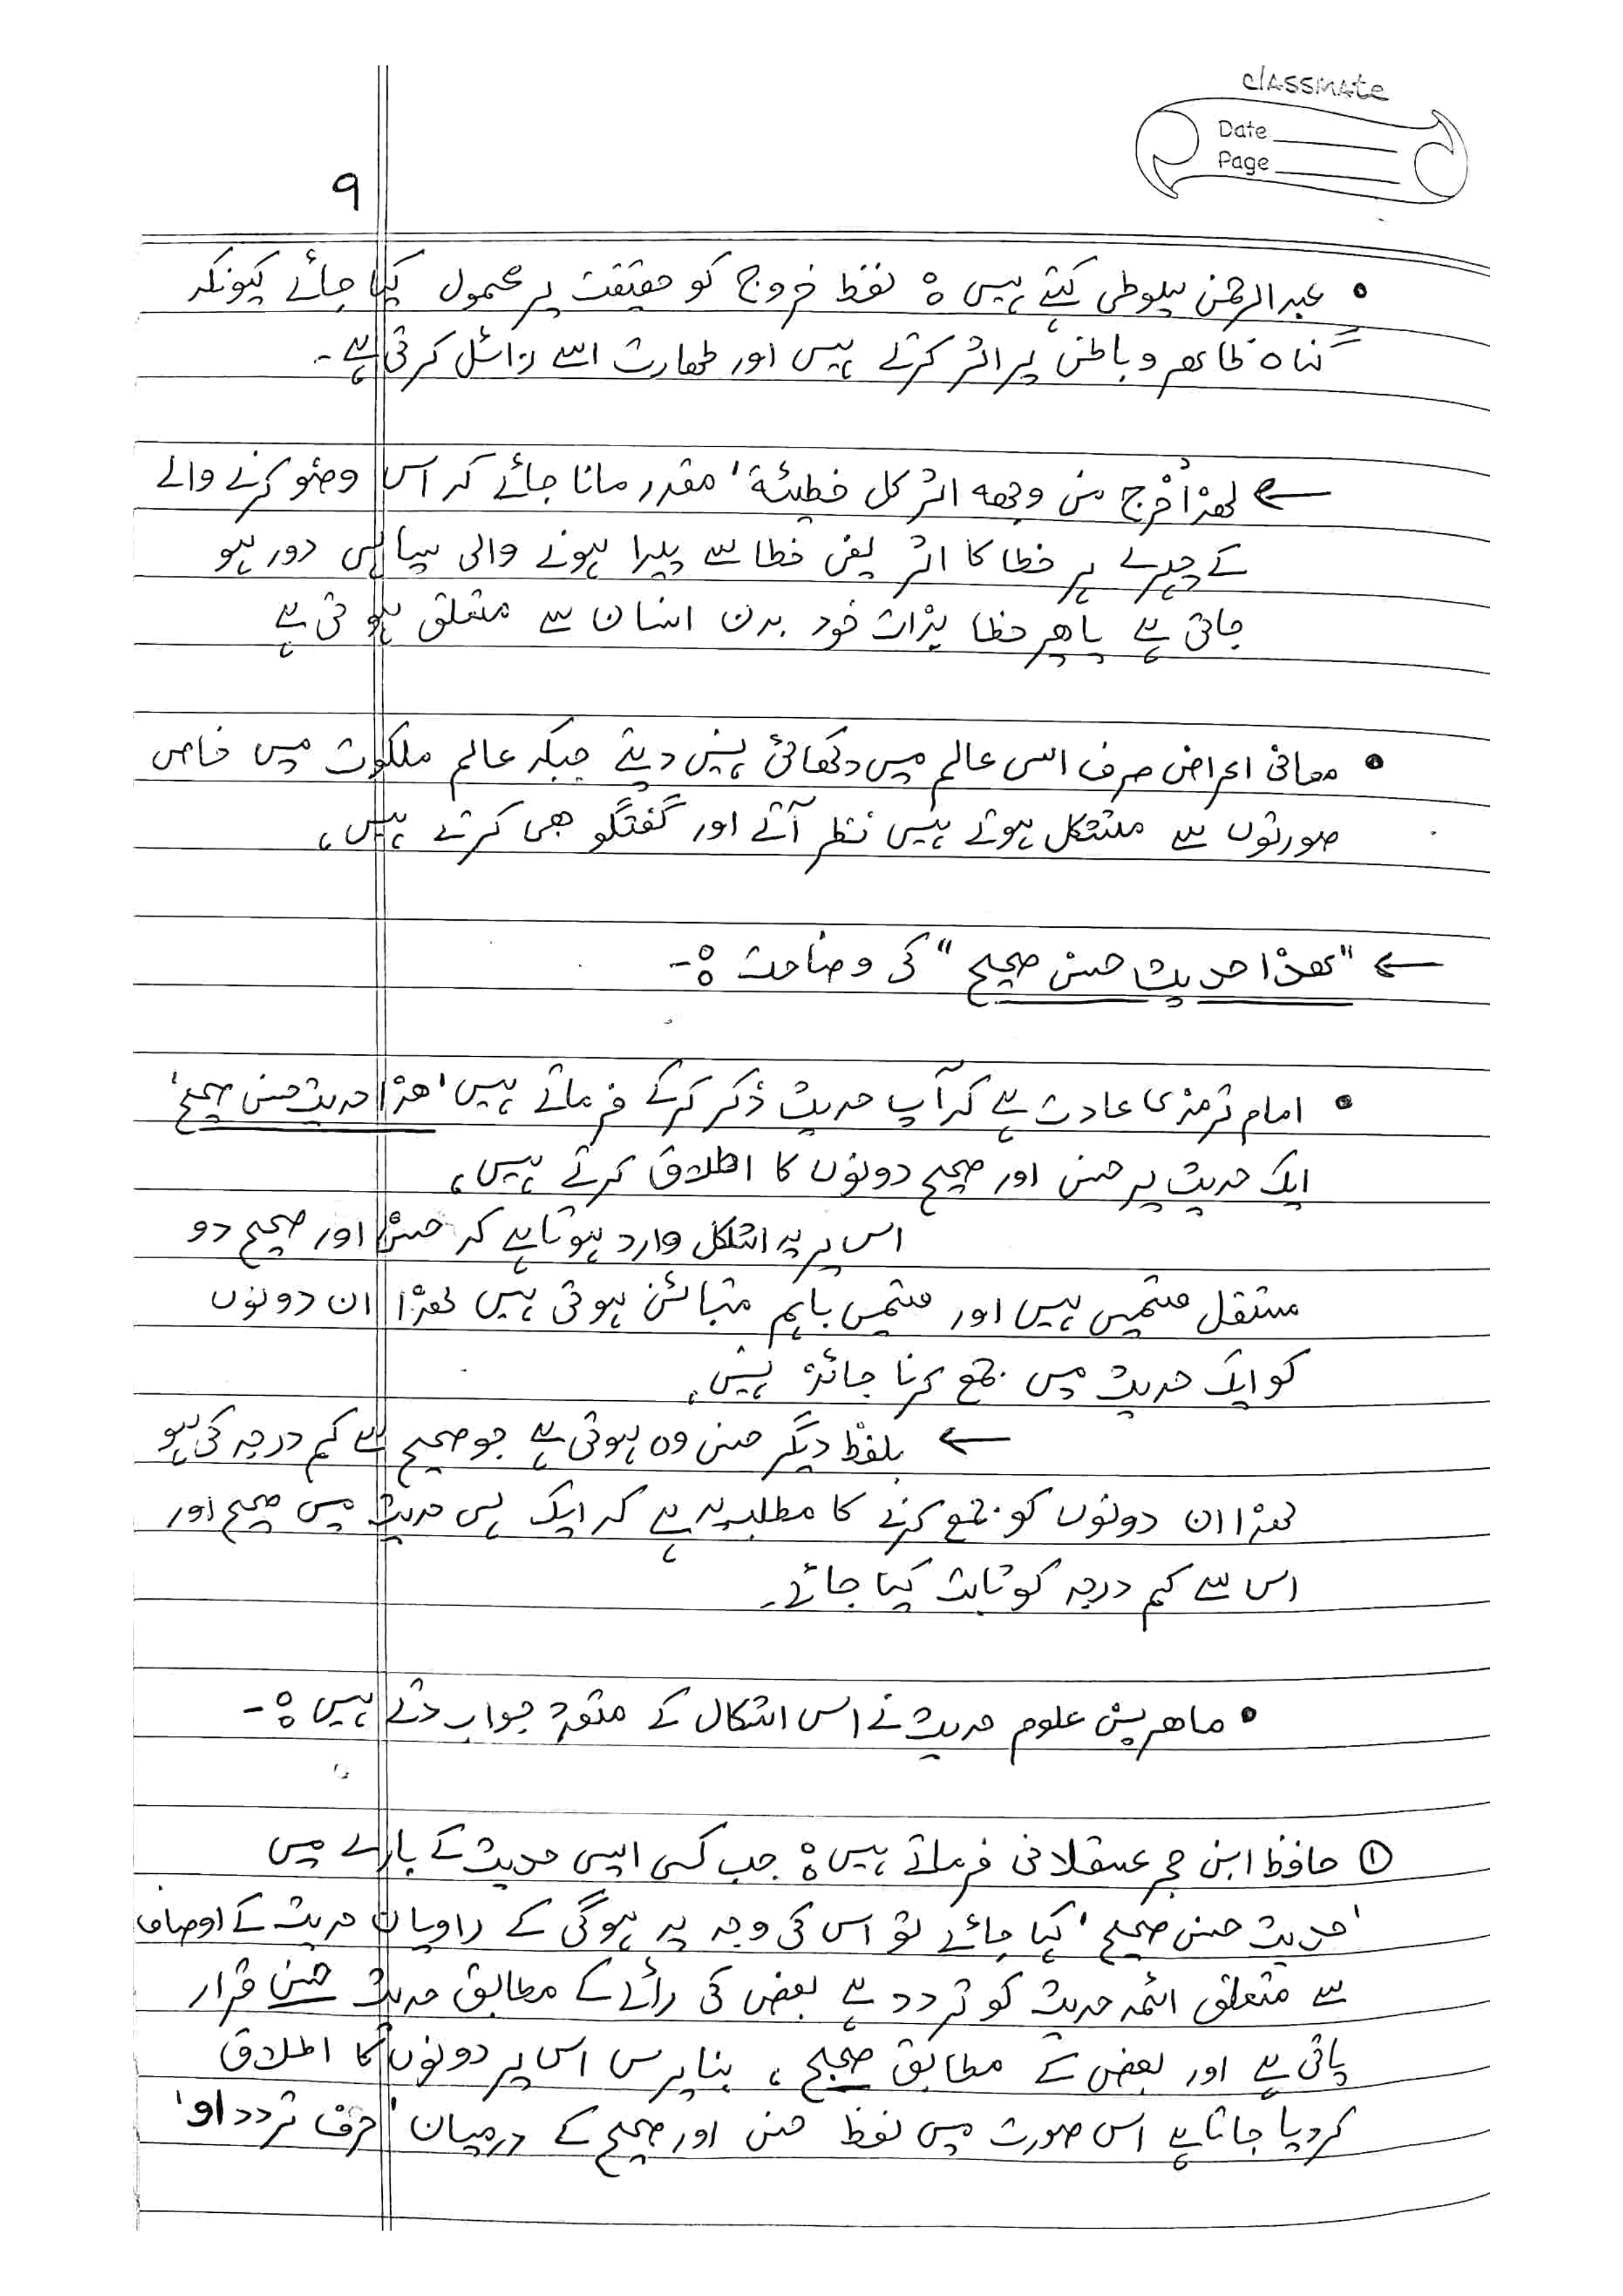 classmate
Date
Page
۹
• عبد الرحمٰن سیوطی کہتے ہیں : لفظ خروج کو حقیقت پر محمول کیا جائے کیونکہ
گناہ ظاھر و باطن پر اثر کرتے ہیں اور طھارت اسے زائل کرتی ہے۔
← لھذا خرج من وجھہ اثر کل خطیئة' مقدر مانا جائے کہ اس وضو کرنے والے
کے چہرے پر خطا کا اثر یعنی خطا سے پیدا ہونے والی سیاہی دور ہو
جاتی ہے یا پھر خطا بذات خود بدن انسان سے متعلق ہوتی ہے
• معانی اعراض صرف اسی عالم میں دکھائی نہیں دیتے جبکہ عالم ملکوت میں خاص
صورتوں سے متشکل ہوتے ہیں نظر آتے اور گفتگو بھی کرتے ہیں،
← "ھذا حدیث حسن صحیح" کی وضاحت :-
• امام ترمذی عادت ہے کہ آپ حدیث ذکر کرکے فرماتے ہیں 'ھذا حدیث حسن صحیح'
ایک حدیث پر حسن اور صحیح دونوں کا اطلاق کرتے ہیں،
اس پر یہ اشکل وارد ہوتا ہے کہ حسن اور صحیح دو
مستقل قسمیں ہیں اور قسمیں باہم متبائن ہوتی ہیں لھذا ان دونوں
کو ایک حدیث میں جمع کرنا جائز نہیں،
← بلفظ دیگر حسن وہ ہوتی ہے جو صحیح سے کم درجہ کی ہو
لھذا ان دونوں کو جمع کرنے کا مطلب یہ ہے کہ ایک ہی حدیث میں صحیح اور
اس سے کم درجہ کو ثابت کیا جائے۔
• ماھرین علوم حدیث نے اس اشکال کے متعدد جواب دئے ہیں :-
① حافظ ابن حجر عسقلانی فرماتے ہیں : جب کسی ایسی حدیث کے بارے میں
'حدیث حسن صحیح' کہا جائے تو اس کی وجہ یہ ہوگی کے راویان حدیث کے اوصاف
سے متعلق ائمہ حدیث کو تردد ہے بعض کی رائے کے مطابق حدیث حسن قرار
پاتی ہے اور بعض کے مطابق صحیح، بنا برس اس پر دونوں کا اطلاق
کردیا جاتا ہے اس صورت میں لفظ حسن اور صحیح کے درمیان 'حرف تردد او'